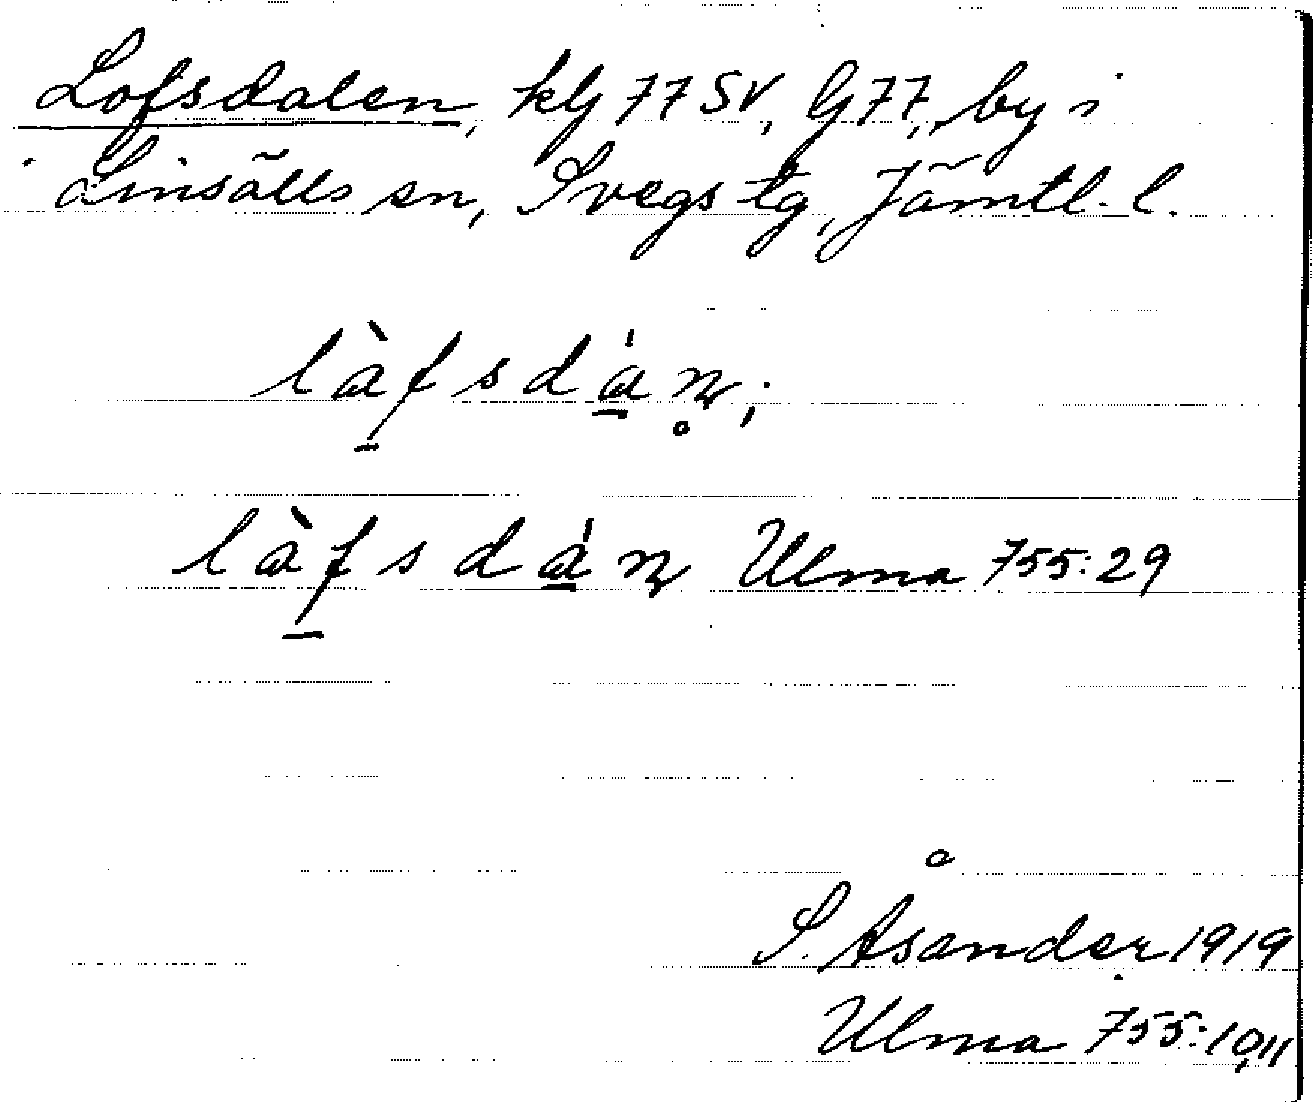 Lofsdalen, klj 77 SV, G77, by i
Linsälls sn, Svegs tg, Jämtl. l.
làfsdán̥;
làfsdán Ulma 755:29
S. Åsander 1919
Ulma 755:10,11